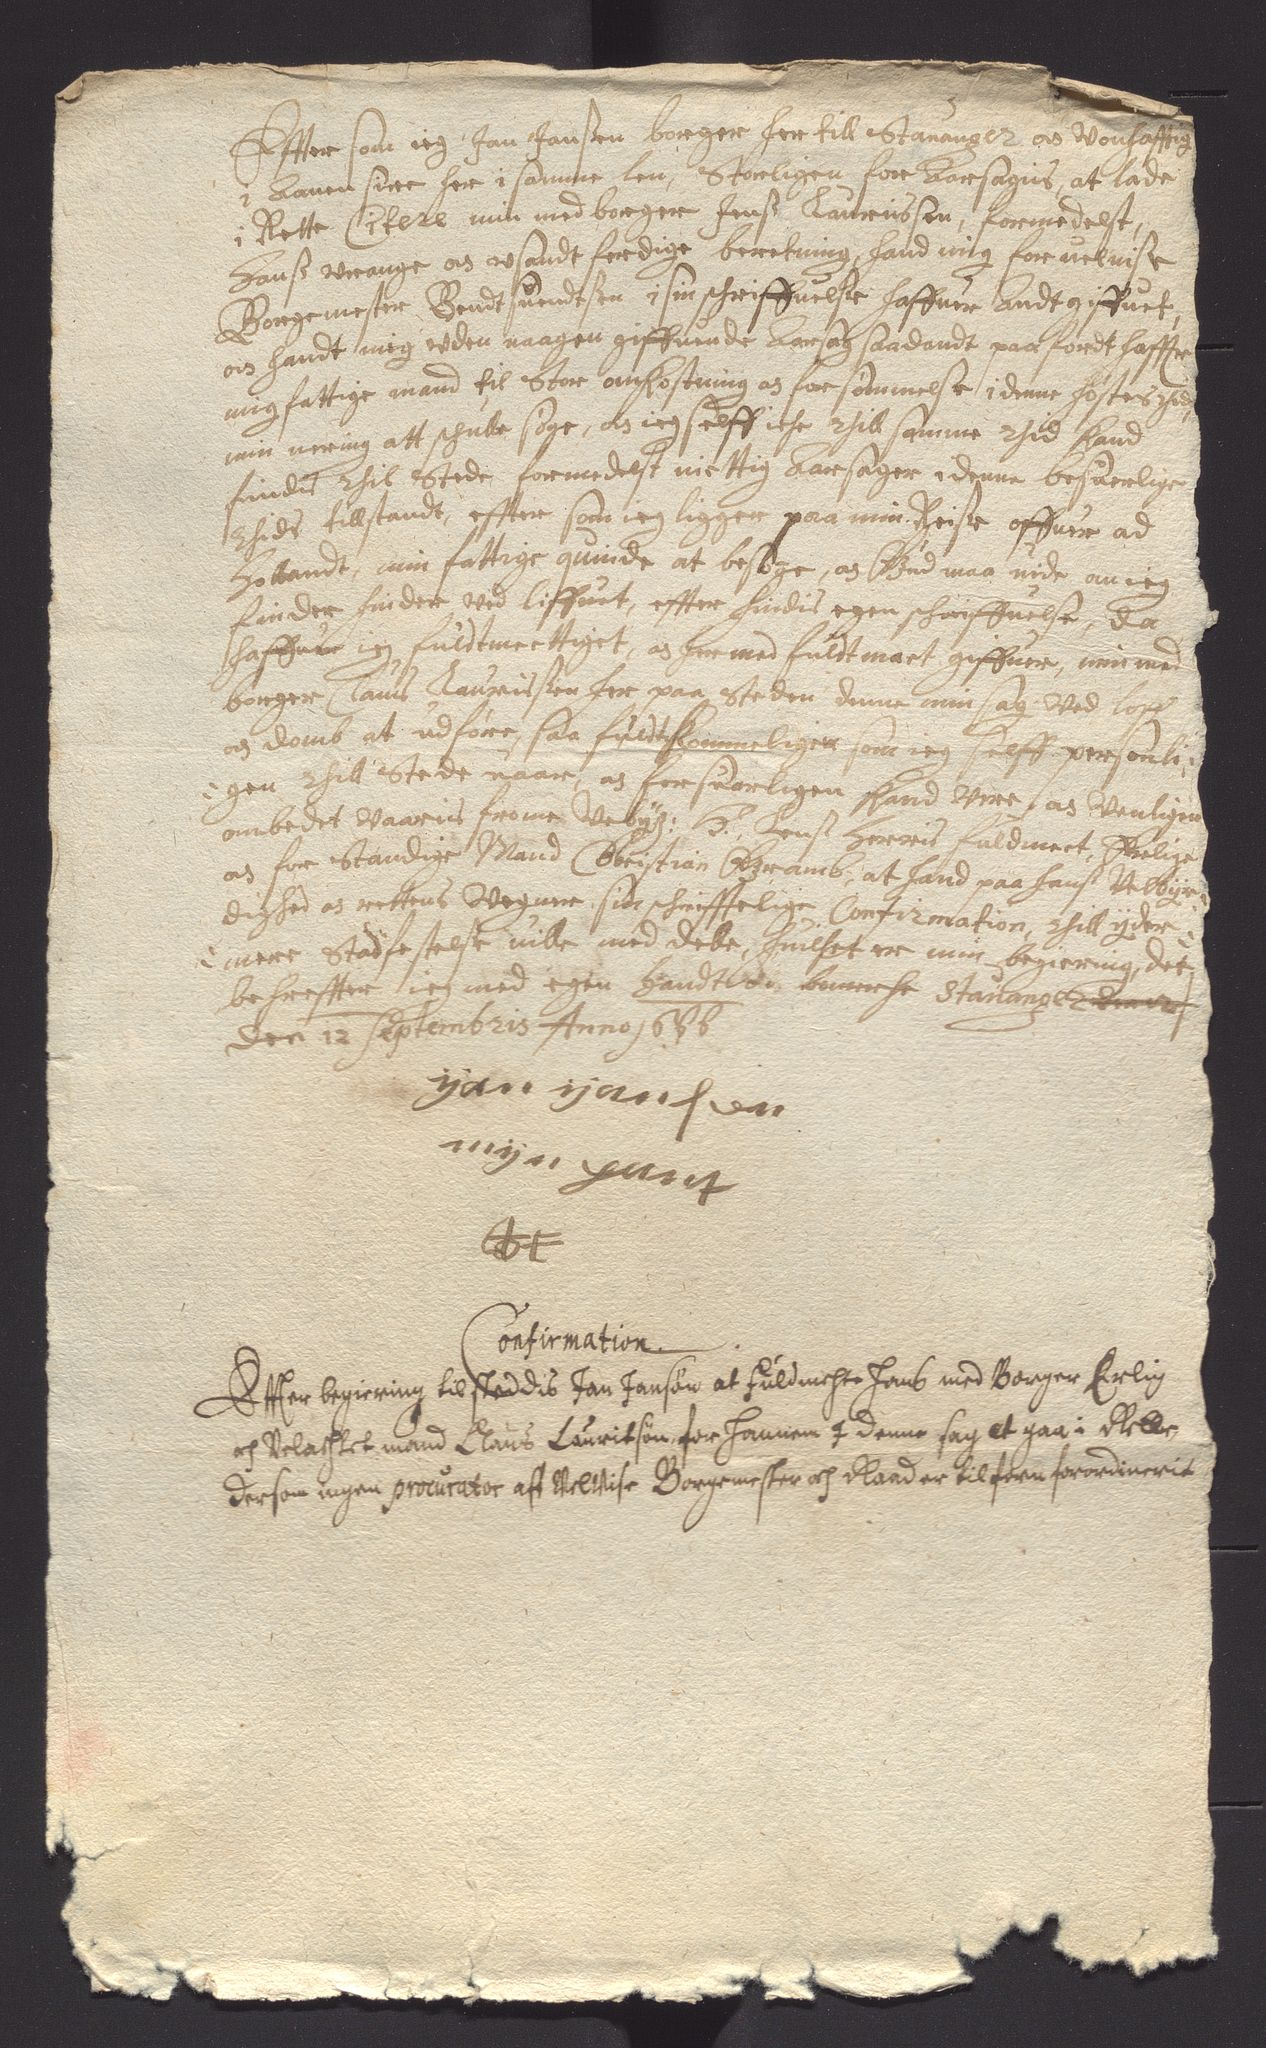 Effter som ieg Jan Jansen borger her till Stauanger oc Vonhafftig
i her i samme len, Storligen for Aarsagis, at lade
i Rette Citere min med borger Jens Lauridssen, formedelst,
Hans Vrange oc vsandtferdige beretning, hand mig for veluise
Borgemester Bendt Suendtsen i sin schriffuelse haffuer Andtgiffuet,
oc handt mig vden naagen giffuende Aarsag saadandt paa fordt haffr
mig fattige mand til Stor omkostning oc forsømmelse i denne høstes thid,
min nering att schulle søge, oc ieg selff iche thill samme thid kand
findis thil Stede formedelst nøttig Aarsager i denne besuerlige
thids tillstandt, effter som ieg ligger paa min Reise offuer ad
Hollandt, min fattige quinde at besøge, oc Gud maa uide om ieg
finder hinder ved liffuet, effter hindis egen schriffuelse, Da
haffuer ieg fuldtmecttiget, oc her med fuldtmact giffuer, min med
borger Claus Lauridssen her paa Steden denne min sag ved loff
oc domb at udføre, saa fuldtkommeligen som ieg selff personli-
gen thill Stede vaar, oc forsuarligen kand vere, oc Venligen
ombedet Vaaris fromme Velbyr: H: Lens Herris fuldmect, Erlige
oc for Standige Mand Christian Gramb, at hand paa hans Velbyr-
dighed oc rettens Vegne sin schrifftelige Confirmation, thill yder-
mere Stadfestelse ville med dele, huilket er min begiering, det
bekreffter ieg med egen Handt oc bomerche Stauanger
den 12 Septembris Anno 1666
ijan ijansen
mijn hant
Confirmation
Effter begiering tilsteddis Jan Jansøn at fuldmechte hans med Borger Erlig
och Velachtet mand Claus Lauritsøn for hannem I denne sag at gaa i Rette
dersom ingen procurator aff Velwise Borgemester och Raad er tilforn forordinerit